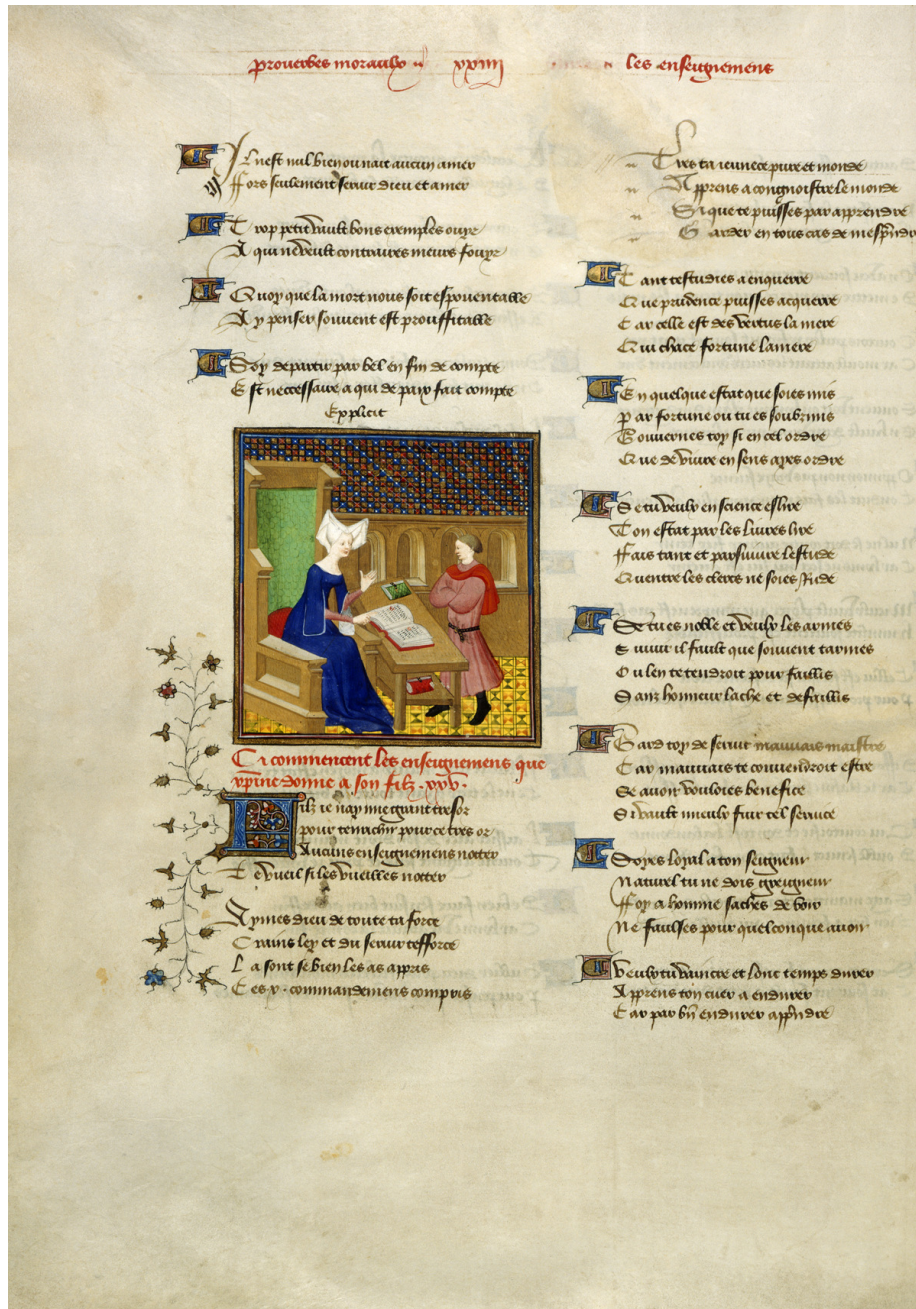 prouerbes moraulx xxiiij
les enseignemens
Il nest nul bien ou nait aucun amer
Fors seulement seruir dieu et amer
Trop petit vault bons exemples ouyr
A qui ne veult contraires meurs fouyr
Quoy que la mort nous soit espouentable
A y penser souuent est prouffitable
Soy departir par bel en fin de compte
Est neccessaire a qui de paix fait compte
Explicit
Ci commencent les enseignemens que
xpine donne a son filz .xxv.
Filz ie nay mie grant tresor
pour tenrichir pour ce tres or
Aucuns enseignemens notter
Te vueil si les vueilles notter
Aymes dieu de toute ta force
Crains ley et du seruir tefforce
La sont se bien les as appris
Les x. commandemens compris
Tres ta ieunece pure et monde
Apprens a congnoistre le monde
Si que te puisses par apprendre
Garder en tous cas de mespendr
Tant testudies a enquerre
Que prudence puisses acquerre
Car celle est des vertus la mere
Qui chace fortune lamere
En quelque estat que soies mis
Par fortune ou tu es soubzmis
Gouuernes toy si en cel ordre
Que de viure en sens ayes ordre
Se tu veulx en science eslire
Ton estat par les liures lire
Fais tant et par suiure lestude
Quentre les clers ne soies rude
Se tu es noble et veulx les armes
Suiuir il fault que souuent tarmes
Ou len te tendroit pour faillis
Sanz honneur lache et defaillis
Gard toy de seruir mauuais maistre
Car mauuais te conuendroit estre
Se auoir vouloies benefice
Si vault mieulx fuir tel seruice
Soyes loyal a ton seigneur
Naturel tu ne dois greigneur
Foy a homme saches de voir
Ne faulses pour quelconque auoir
Veulx tu vaincre et lonc temps durer
Apprens ton cuer a endurer
Car par bn endurer appndre